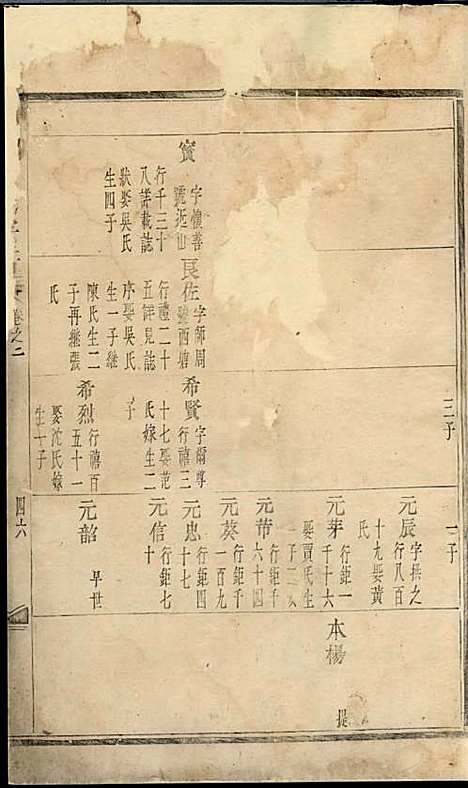 三子
一子
元辰 字揆之
行八百
十九娶黃
氏
元芽 行鉅一
千十六
娶賈氏生
本楊
提
元芾 行鉅千
六十四
元葵 行鉅千
一百九
寶 字懷善
號近山
行千三十
八諾載誌
狀娶吳氏
生四子
良佐 字師周
號西塘
行禮二十
五詳見誌
序娶吳氏
生一子繼
陳氏生二
子再繼張
氏
希賢 字爾尊
行禧三
十七娶范
氏嫁生二
子
元忠 行鉅四
十七
元信 行鉅七
十
希烈 行禧百
五十一
娶沈氏嫁
生一子
元韶 早世
卷之二
四六